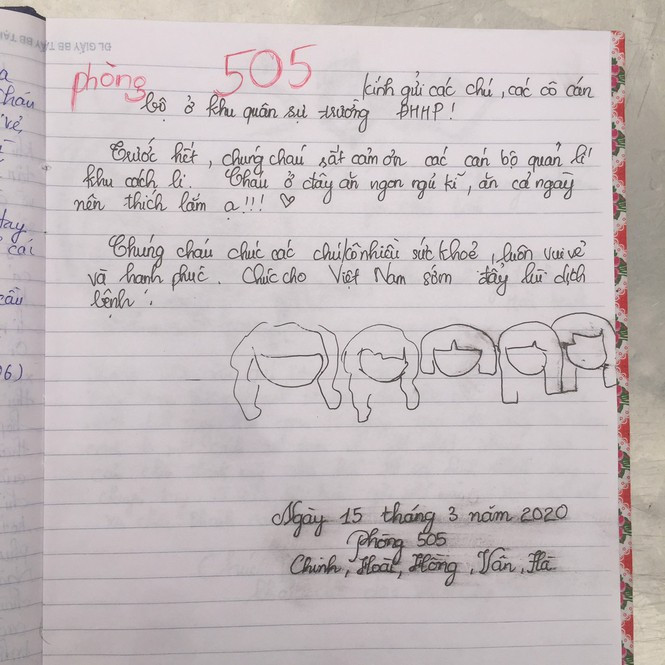 phòng 505 kính gửi các chú, các cô cán
bộ ở khu quân sự trường ĐHHP!
Trước hết, chúng cháu rất cảm ơn các cán bộ quản lí
khu cách li. Cháu ở đây ăn ngon ngủ kĩ, ăn cả ngày
nên thích lắm ạ!!! ♡
Chúng cháu chúc các chú/cô nhiều sức khoẻ, luôn vui vẻ
và hạnh phúc. Chúc cho Việt Nam sớm đẩy lùi dịch
bệnh!
Ngày 15 tháng 3 năm 2020
Phòng 505
Chinh, Hoài, Hồng, Vân, Hà